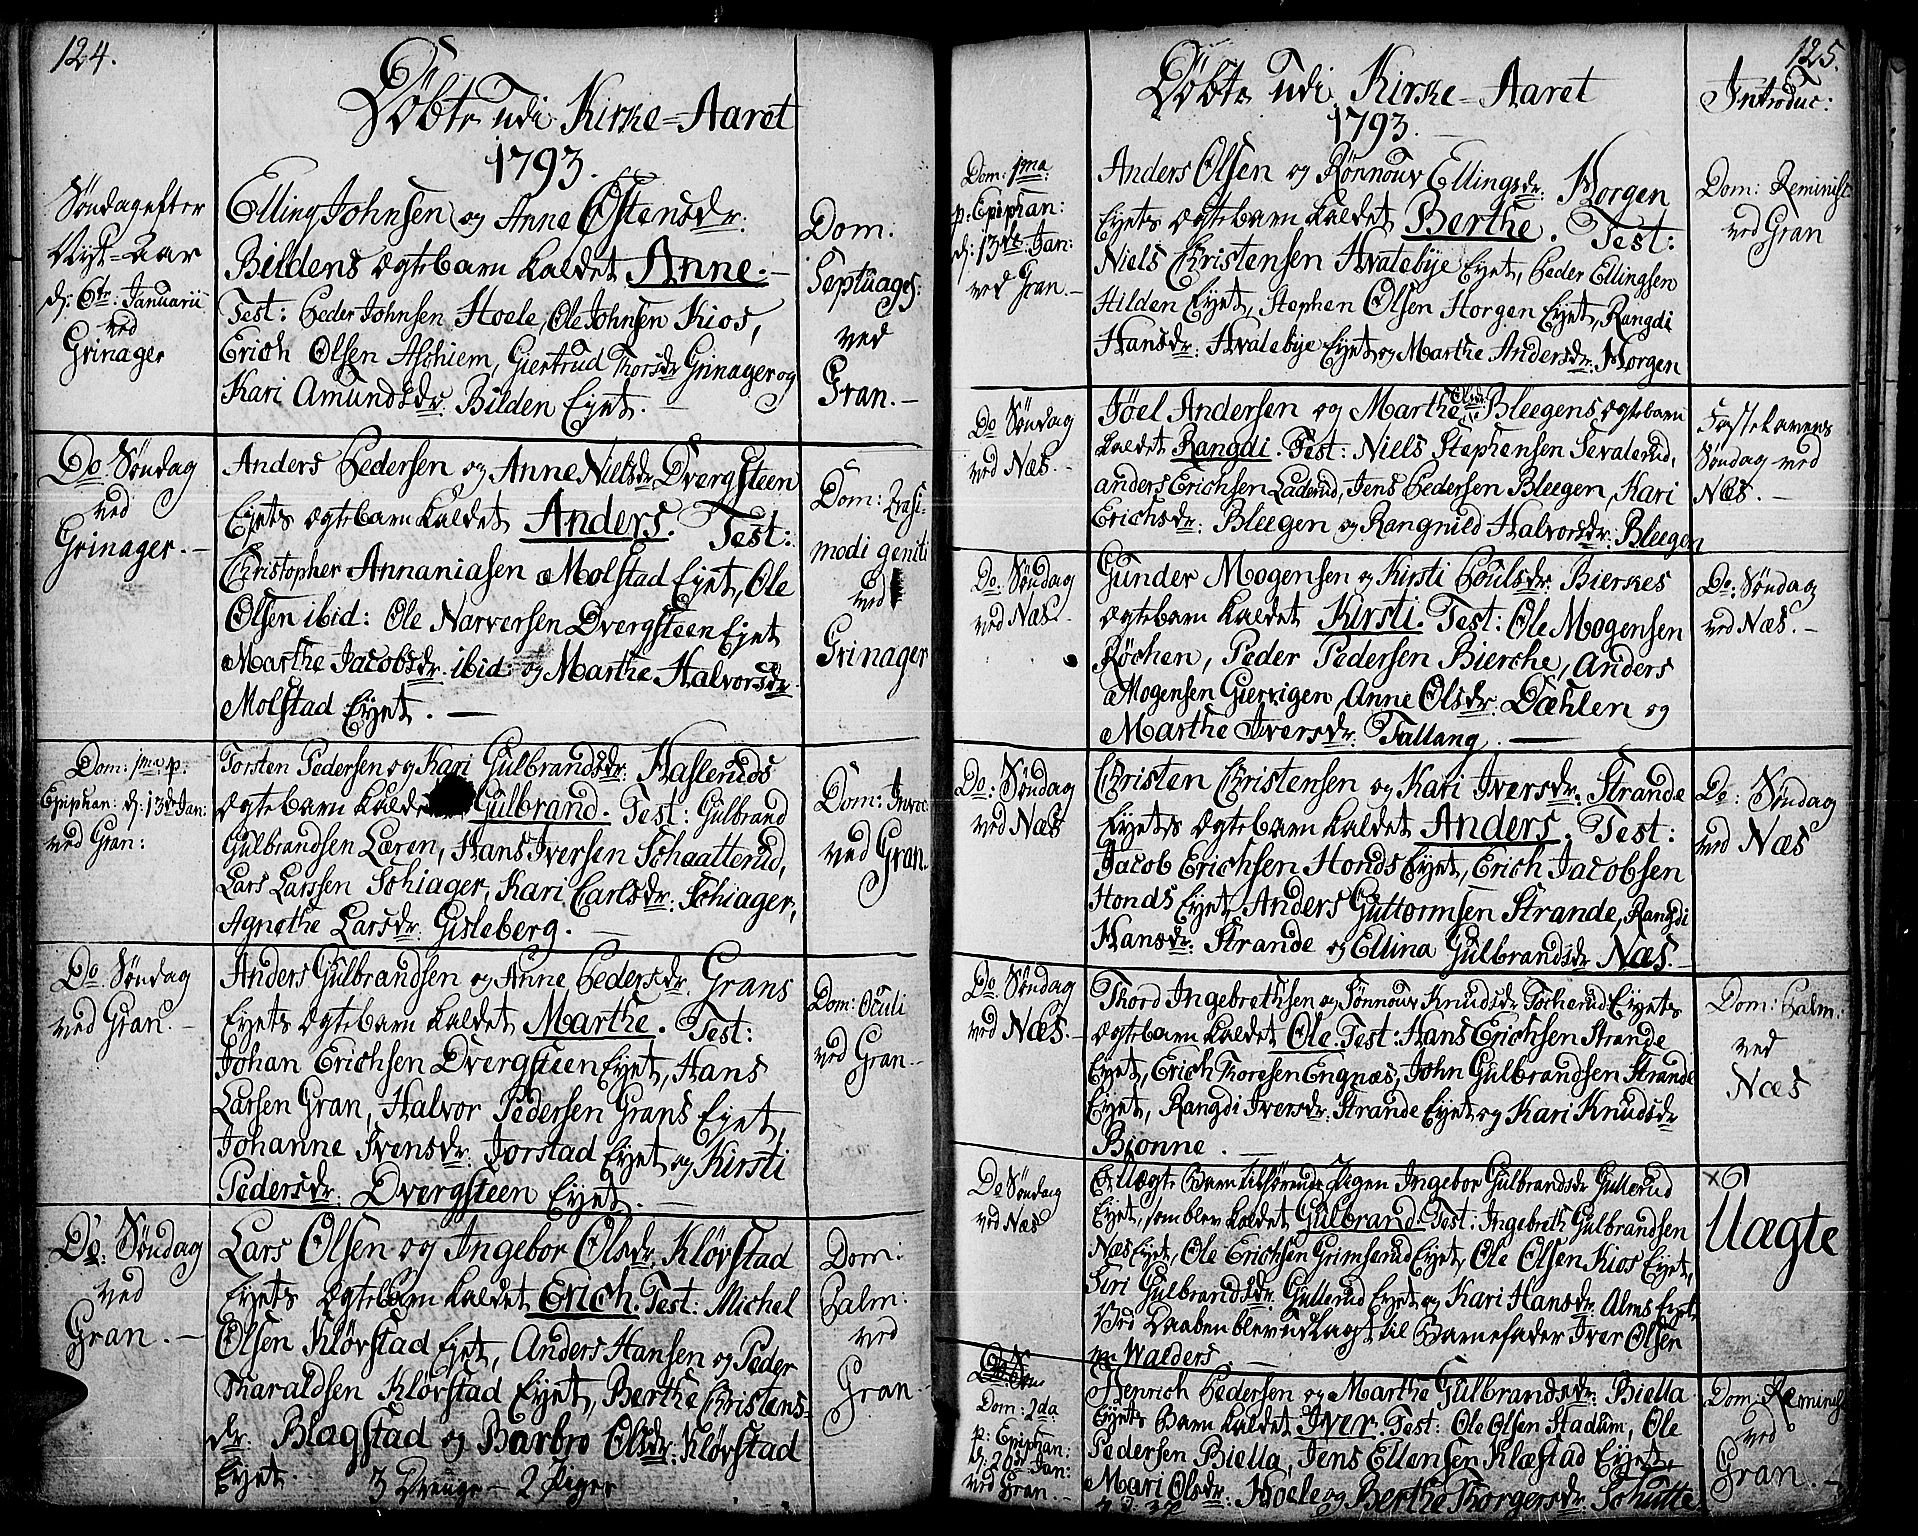 124.
Döbte udi Kirke=Aaret
1793.
Söndag efter
Nyt=aar
d: 6te Januarii
ved
Grinager
Elling Johnsen og Anne Østensdr:
Bildens ægtebarn kaldet Anne. —
Test: Peder Johnsen Hoele, Ole Johnsen Kios,
Erich Olsen Aschiem, Giertrud Thorsdr Grinager og
Kari Amundsdr. Bilden Eyet. —
Dom:
Septuages:
ved
Gran. —
Do Söndag
ved
Grinager. —
Anders Pedersen og Anne Nielsdr Dvergsteen
Eyets ægtebarn kaldet Anders. Test:
Christopher Annaniasen Molstad Eyet, Ole
Olsen ibid: Ole Narversen Dvergsteen Eyet
Marthe Jacobsdr. ibid: og Marthe Halvorsdr
Molstad Eyet. —
Dom: Qvasi-
modi geniti
ved
Grinager
Dom: 1ma p.
Epiphan: d: 13de Jan:
ved Gran:
Torsten Pedersen og Kari Gulbrandsdr: Haslerüds
ægtebarn kaldet Gülbrand. Test: Gulbrand
Gulbrandsen Læren, Hans Iversen Schaatterud,
Lars Larssen Schiager, Kari Carlsdr: Schiager,
Agnethe Larsdr: Gisleberg. —
Dom: Invoc:
ved Gran.
Do Söndag
ved Gran. —
Anders Gulbrandsen og Anne Pedersdr. Grans
Eyets ægtebarn kaldet Marthe. Test:
Johan Erichsen Dvergsteen Eyet, Hans
Larsen Gran, Halvor Pedersen Grans Eyet,
Johanne Svensdr: Jorstad Eyet og Kirsti
Pedersdr: Dvergsteen Eyet. —
Dom: Oculi
ved Gran —
Do: Söndag
ved
Gran. —
Lars Olsen og Ingebor Olsdr. Klövstad
Eyets ægtebarn kaldet Erich. Test: Michel
Olsen Klövstad Eyet, Anders Hansen og Peder
Haraldsen Klövstad Eyet, Berthe Christens-
dr: Blagstad og Barbro Olsdr: Klövstad
Eyet.
3 Drenge — 2 Piger
Dom:
Palm:
ved
Gran —
125.
Döbte udi Kirke=Aaret
1793.
Introduc:
Dom: 1ma
p. Epiphan:
d: 13de Jan:
ved Gran. —
Anders Olsen og Rönnouv Ellingsdr: Horgen
Eyets ægtebarn kaldet Berthe. Test:
Niels Christensen Hvalebye Eyet, Peder Ellingsen
Hilden Eyet, Stephen Olsen Horgen Eyet, Rangdi
Hansdr: Hvalebye Eyet og Marthe Andersdr: Horgen
Dom: Reminisc:
ved Gran
Do Söndag
ved Næs. —
Joel Andersen og Marthe Olsdr: Bleegens ægtebarn
kaldet Rangdi. Test: Niels Stephensen Sevalerud,
anders Erichsen Laderud, Jens Pedersen Bleegen, Kari
Erichsdr: Bleegen og Rangnild Halvorsdr: Bleegen
Fastelavens
Söndag ved
Næs. —
Do: Söndag
ved Næs. —
Gunder Mogensen og Kirsti Poulsdr: Bierkes
ægtebarn kaldet Kirsti. Test: Ole Mogensen
Röchen, Peder Pedersen Bierche, Anders
Mogensen Giervigen, Anne Olsdr: Dæhlen og
Marthe Iversdr: Fallang. —
Do: Söndag
ved Næs. —
Do: Söndag
ved Næs
Christen Christensen og Kari Iversdr. Strande
Eyets ægtebarn kaldet Anders. Test:
Jacob Erichsen Honds Eyet, Erich Jacobsen
Honds Eyet, Anders Guttormsen Strande, Rangdi
Hansdr: Strande og Ellina Gulbrandsdr Næs. —
Do: Söndag
ved Næs
Do Söndag
ved Næs. —
Thord Ingebrethsen og Sönnouv Knudsdr Tocherud Eyets
ægtebarn kaldet Ole. Test: Hans Erichsen Strande
Eyet, Erich Thoresen Engnæs, John Gulbrandsen Strande
Eyet, Rangdi Iversdr: Strande Eyet og Kari Knudsdr
Bionne. —
Dom: Palm:
ved
Næs
Do Söndag
ved Næs
Et Uægte Barn tilhörende Pigen Ingebor Gulbrandsdr Gullerud
Eyet, som blev kaldet Gulbrand. Test: Ingebreth Gulbrandsen
Næs Eyet, Ole Erichsen Grimserud Eyet, Ole Olsen Kios Eyet,
Siri Gulbrandsdr: Gullerud Eyet og Kari Hansdr: Alms Eyet
Ved Daaben blev udlagt til Barnefader Iver Olsen
Walders —
Uægte
Dom: 2da
p: Epiphan:
d: 20de Jan:
ved Gran. —
Henrich Pedersen og Marthe Gulbrandsdr: Biella
Eyets Barn kaldet Iver. Test: Ole Olsen Stadum, Ole
Pedersen Biella, Jens Ellensen Klæstad Eyet
Mari Olsdr: Hoele og Berthe Thorgersdr: Schutte
Dom: Reminisc
ved
Gran. —